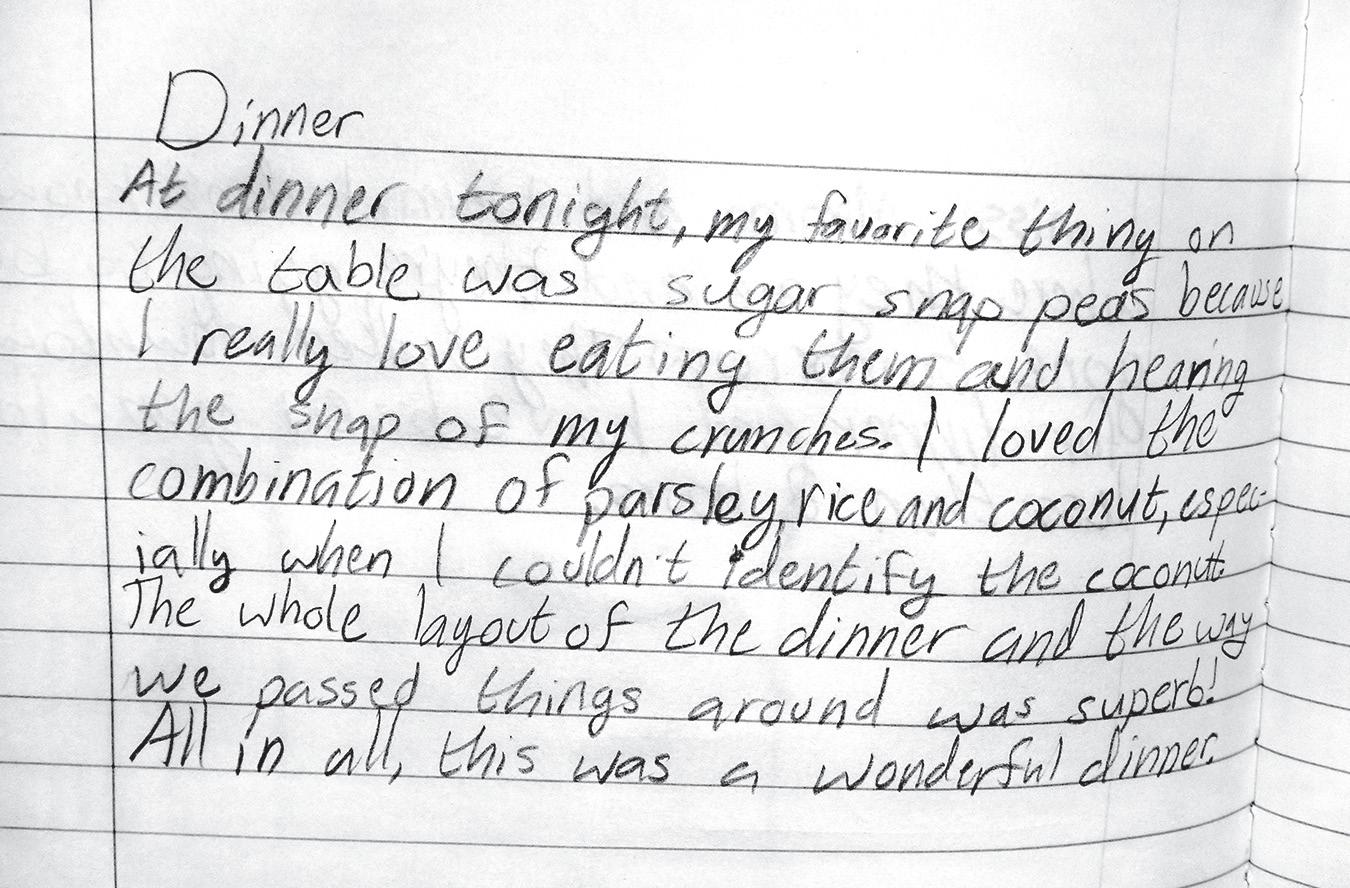 Dinner
At dinner tonight, my favorite thing on
the table was sugar snap peas because
I really love eating them and hearing
the snap of my crunches. I loved the
combination of parsley, rice and coconut, espec-
ially when I couldn't identify the coconut.
The whole layout of the dinner and the way
we passed things around was superb!
All in all, this was a wonderful dinner.